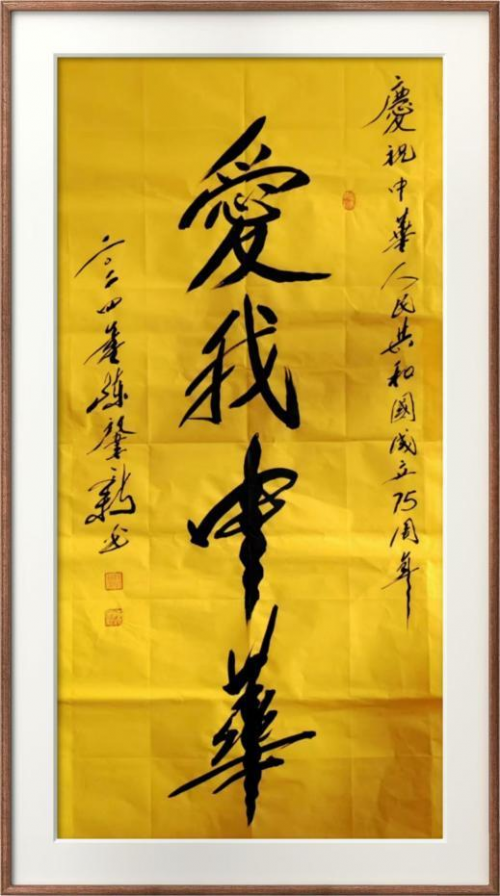 慶祝中華人民共和國成立75周年
愛我中華
二〇二四年 肇新书